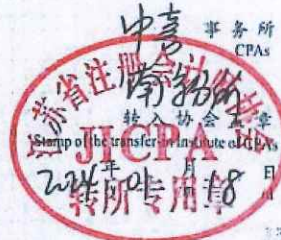 事务所
CPAs
江苏省注册会计师协会
转入协会盖章
Stamp of the transfer-in Institute of CPAs
JICPA
2024年01月18日
转所专用章